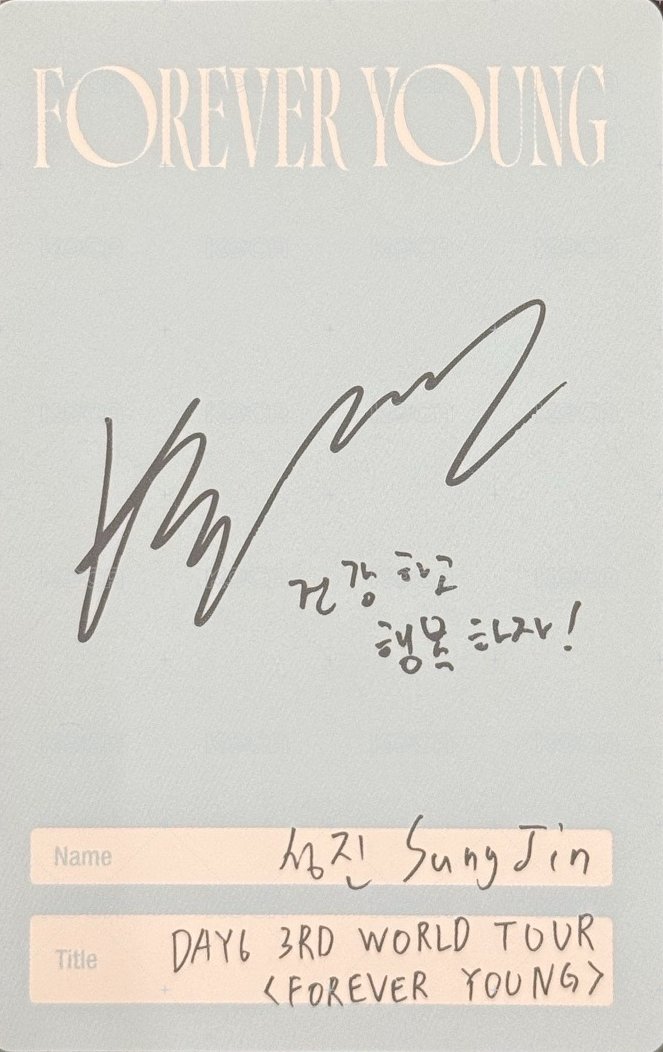 FOREVER YOUNG
건강하고
행복하자!
Name 성진 SungJin
Title DAY6 3RD WORLD TOUR
<FOREVER YOUNG>